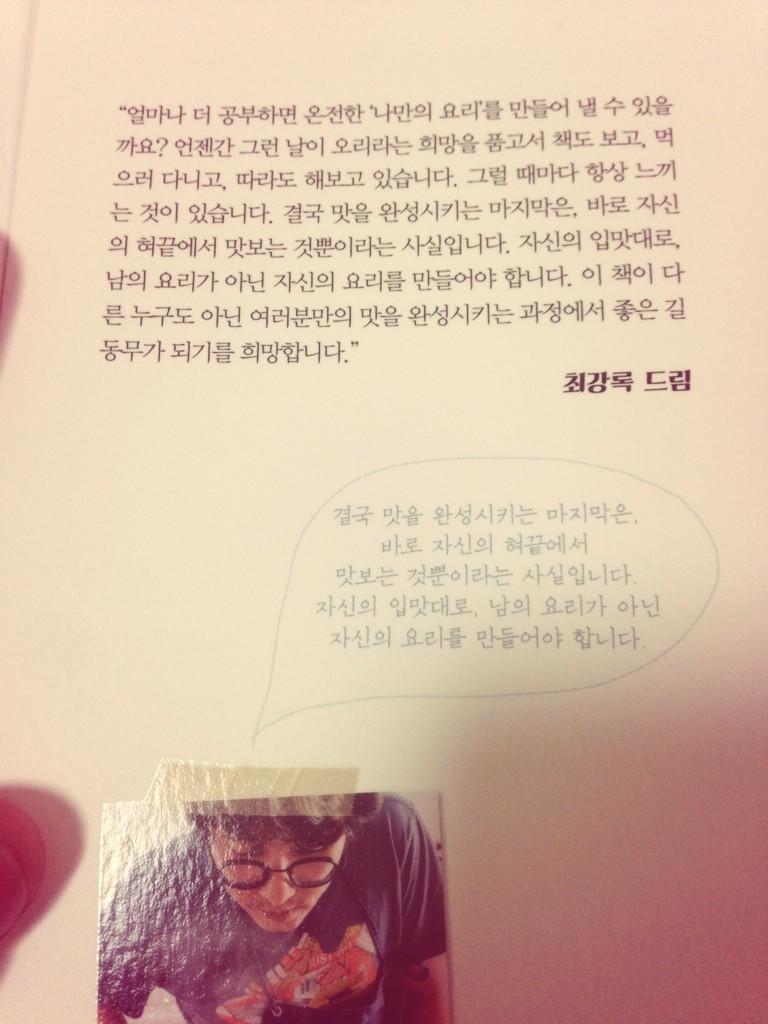 “얼마나 더 공부하면 온전한 ‘나만의 요리’를 만들어 낼 수 있을
까요? 언젠간 그런 날이 오리라는 희망을 품고서 책도 보고, 먹
으러 다니고, 따라도 해보고 있습니다. 그럴 때마다 항상 느끼
는 것이 있습니다. 결국 맛을 완성시키는 마지막은, 바로 자신
의 혀끝에서 맛보는 것뿐이라는 사실입니다. 자신의 입맛대로,
남의 요리가 아닌 자신의 요리를 만들어야 합니다. 이 책이 다
른 누구도 아닌 여러분만의 맛을 완성시키는 과정에서 좋은 길
동무가 되기를 희망합니다.”
최강록 드림
결국 맛을 완성시키는 마지막은,
바로 자신의 혀끝에서
맛보는 것뿐이라는 사실입니다.
자신의 입맛대로, 남의 요리가 아닌
자신의 요리를 만들어야 합니다.